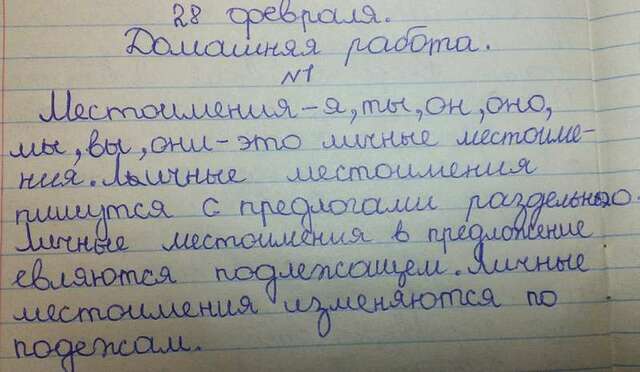 28 февраля.
Домашняя работа.
N1
Местоимения-я, ты, он, оно,
мы, вы, они-это личные местоиме-
ния. Личные местоимения
пишутся с предлогами раздельно.
Личные местоимения в предложение
евляются подлежащем. Личные
местоимения изменяются по
подежам.